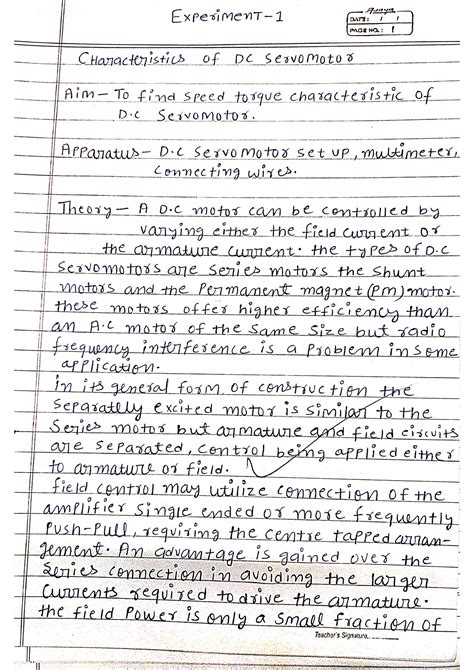 Experiment-1
DATE: / /
PAGE NO.: 1
Characteristics of DC Servomotor
Aim- To find speed torque characteristic of
D.C Servomotor.
Apparatus- D.C Servomotor set up, multimeter,
connecting wires.
Theory- A D.C motor can be controlled by
varying either the field current or
the armature current. the types of D.C
Servomotors are Series motors the Shunt
motors and the Permanent magnet (PM) motor.
these motors offer higher efficiency than
an A.C motor of the same size but radio
frequency interference is a Problem in some
application.
in its general form of construction the
Separately excited motor is similar to the
Series motor but armature and field circuits
are separated, control being applied either
to armature or field.
field control may utilize connection of the
amplifier single ended or more frequently
Push-Pull, requiring the centre tapped arran-
gement. An advantage is gained over the
Series connection in avoiding the larger
currents required to drive the armature.
the field Power is only a small fraction of
Teacher's Signature